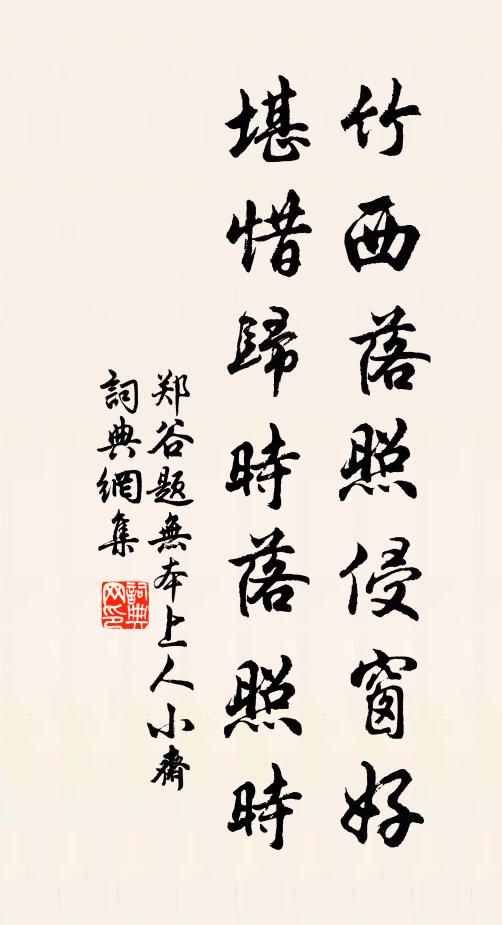 竹西落照侵窗好
堪惜歸時落照時
郑谷题無本上人小齋
詞典網集
詞典网印